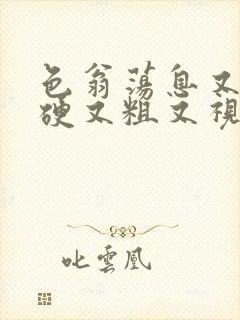 色翁荡息又
硬又粗又视
叱雲凰